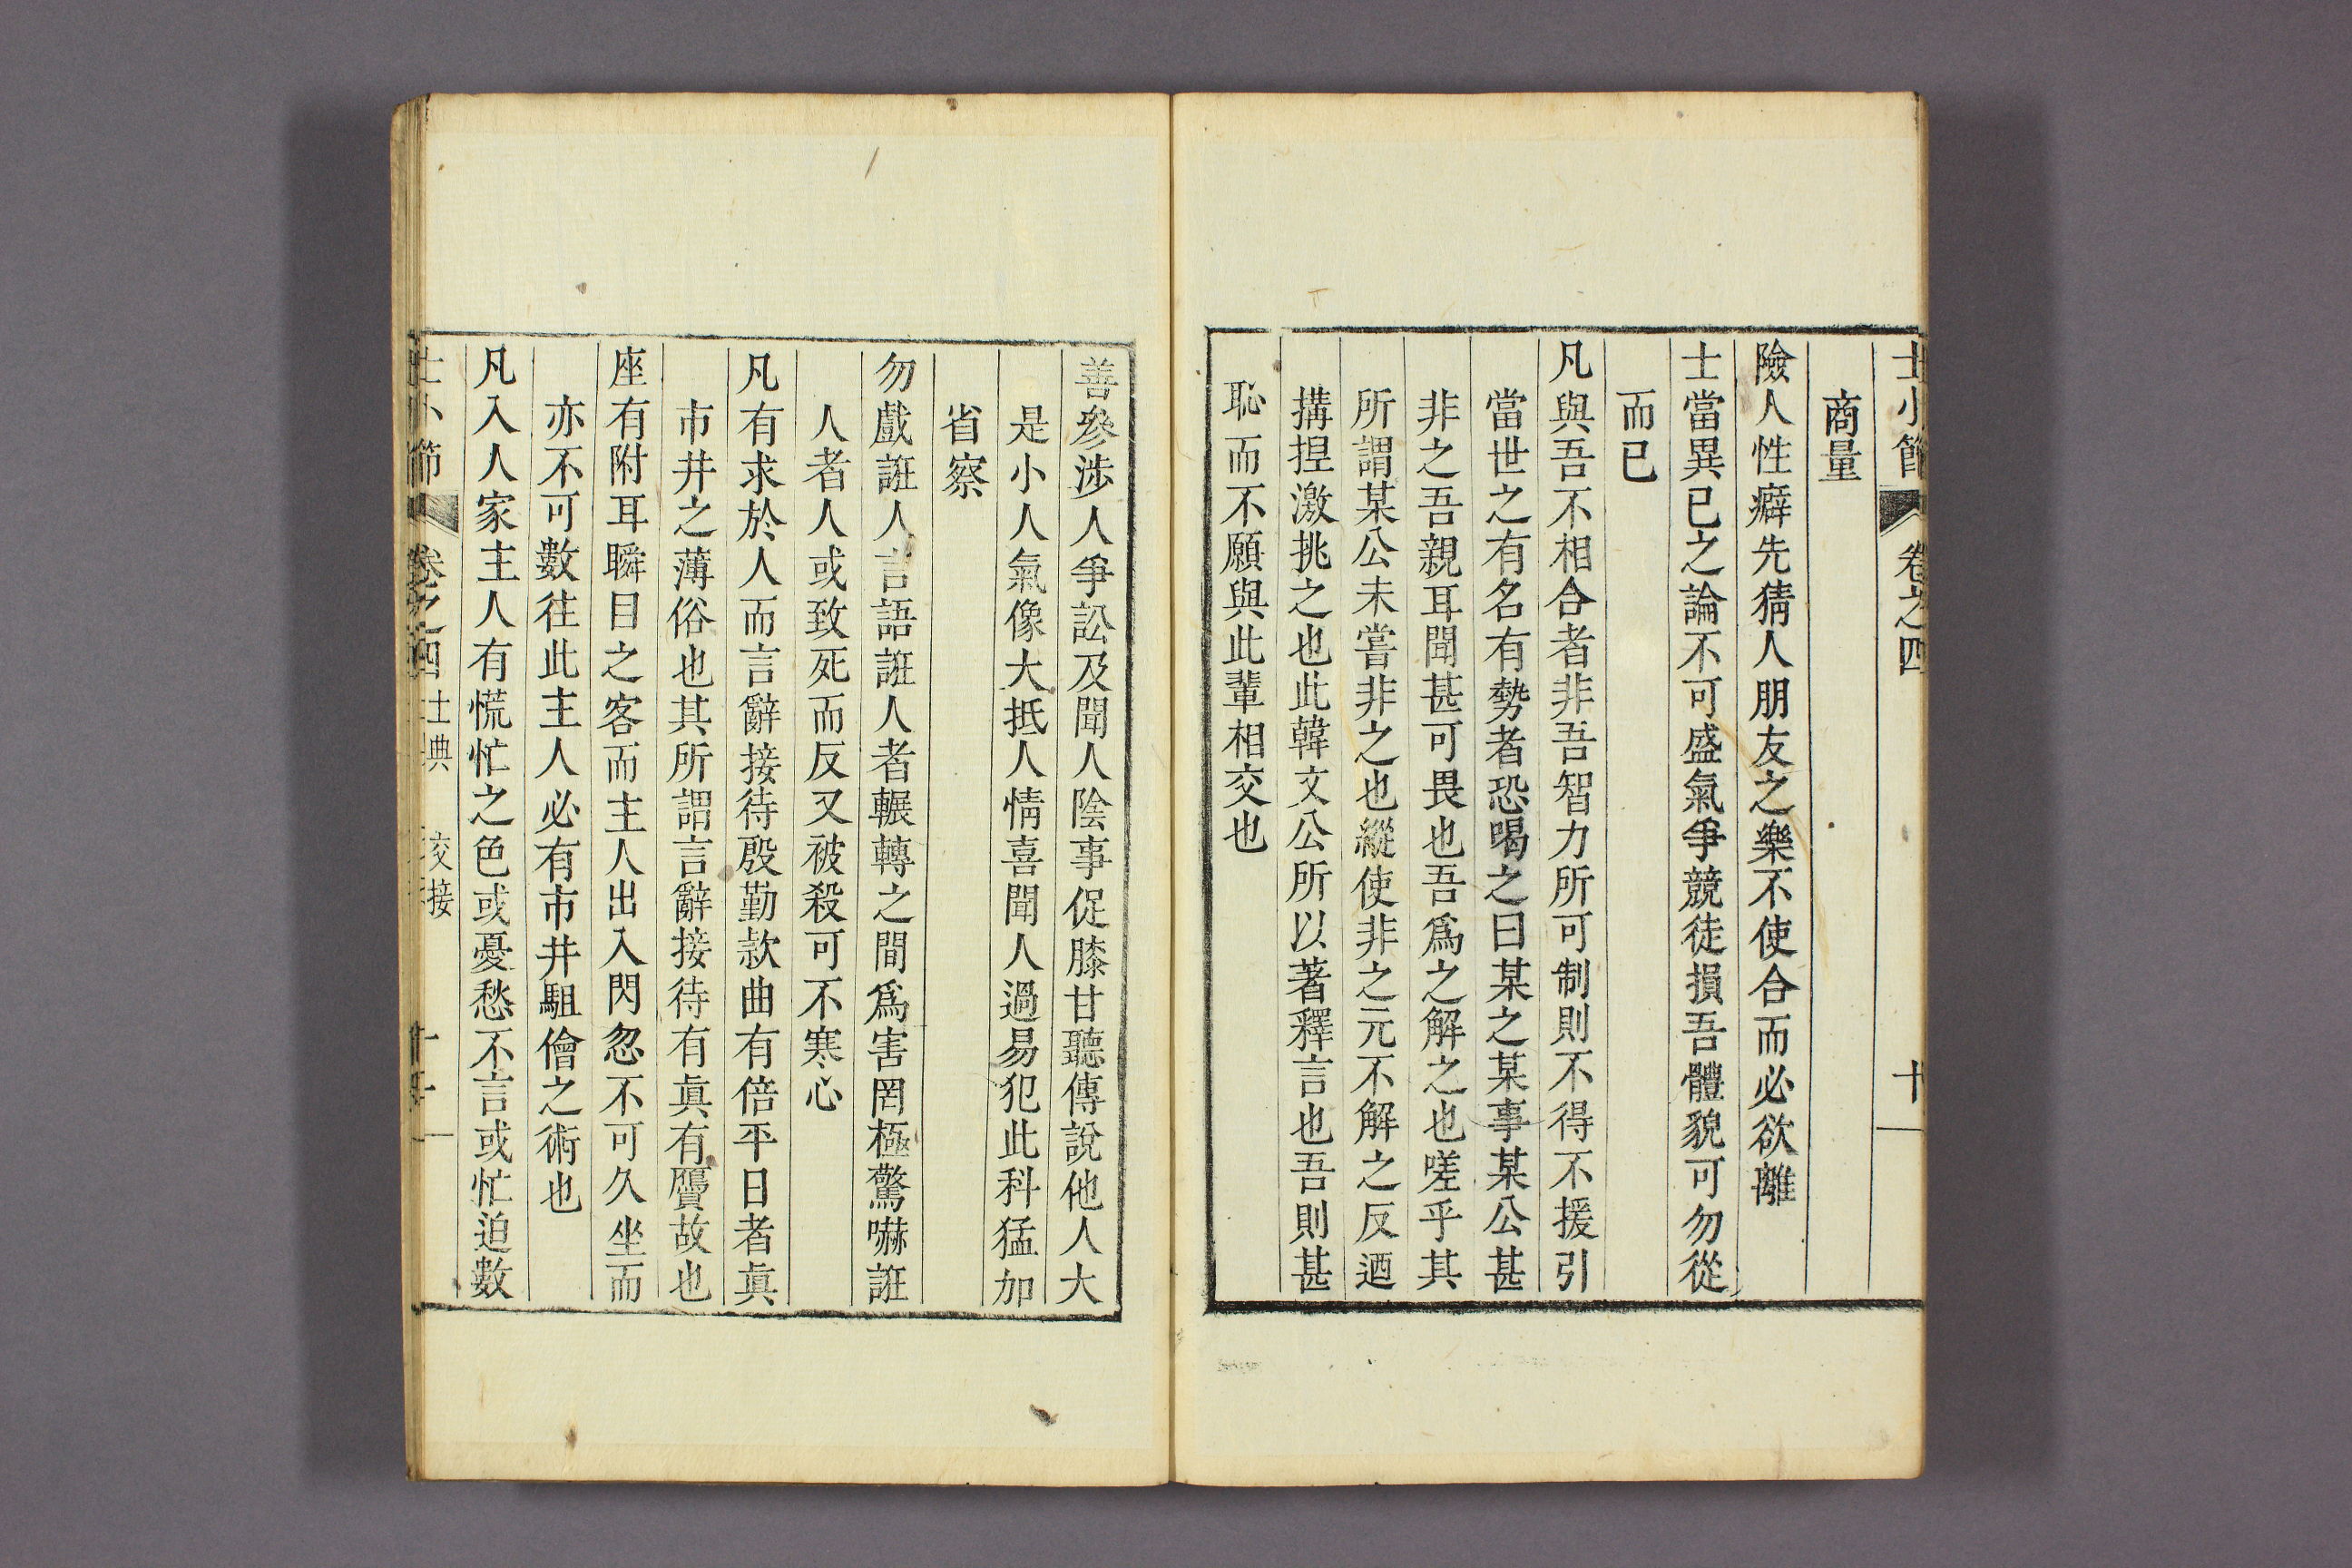 士小節 卷之四 十
商量
險人性癖先猜人朋友之樂不使合而必欲離
士當異已之論不可盛氣爭競徒損吾體貌可勿從
而已
凡與吾不相合者非吾智力所可制則不得不援引
當世之有名有勢者恐喝之曰某之某事某公甚
非之吾親耳聞甚可畏也吾爲之解之也嗟乎其
所謂某公未嘗非之也縱使非之元不解之反迺
搆揑激挑之也此韓文公所以著釋言也吾則甚
恥而不願與此輩相交也
善參涉人爭訟及聞人陰事促膝甘聽傳說他人大
是小人氣像大抵人情喜聞人過易犯此科猛加
省察
勿戲誑人言語誑人者輾轉之間爲害罔極驚嚇誑
人者人或致死而反又被殺可不寒心
凡有求於人而言辭接待殷勤款曲有倍平日者眞
市井之薄俗也其所謂言辭接待有眞有贋故也
座有附耳瞬目之客而主人出入閃忽不可久坐而
亦不可數往此主人必有市井駔儈之術也
凡入人家主人有慌忙之色或憂愁不言或忙迫數
士小節 卷之四 士典 交接